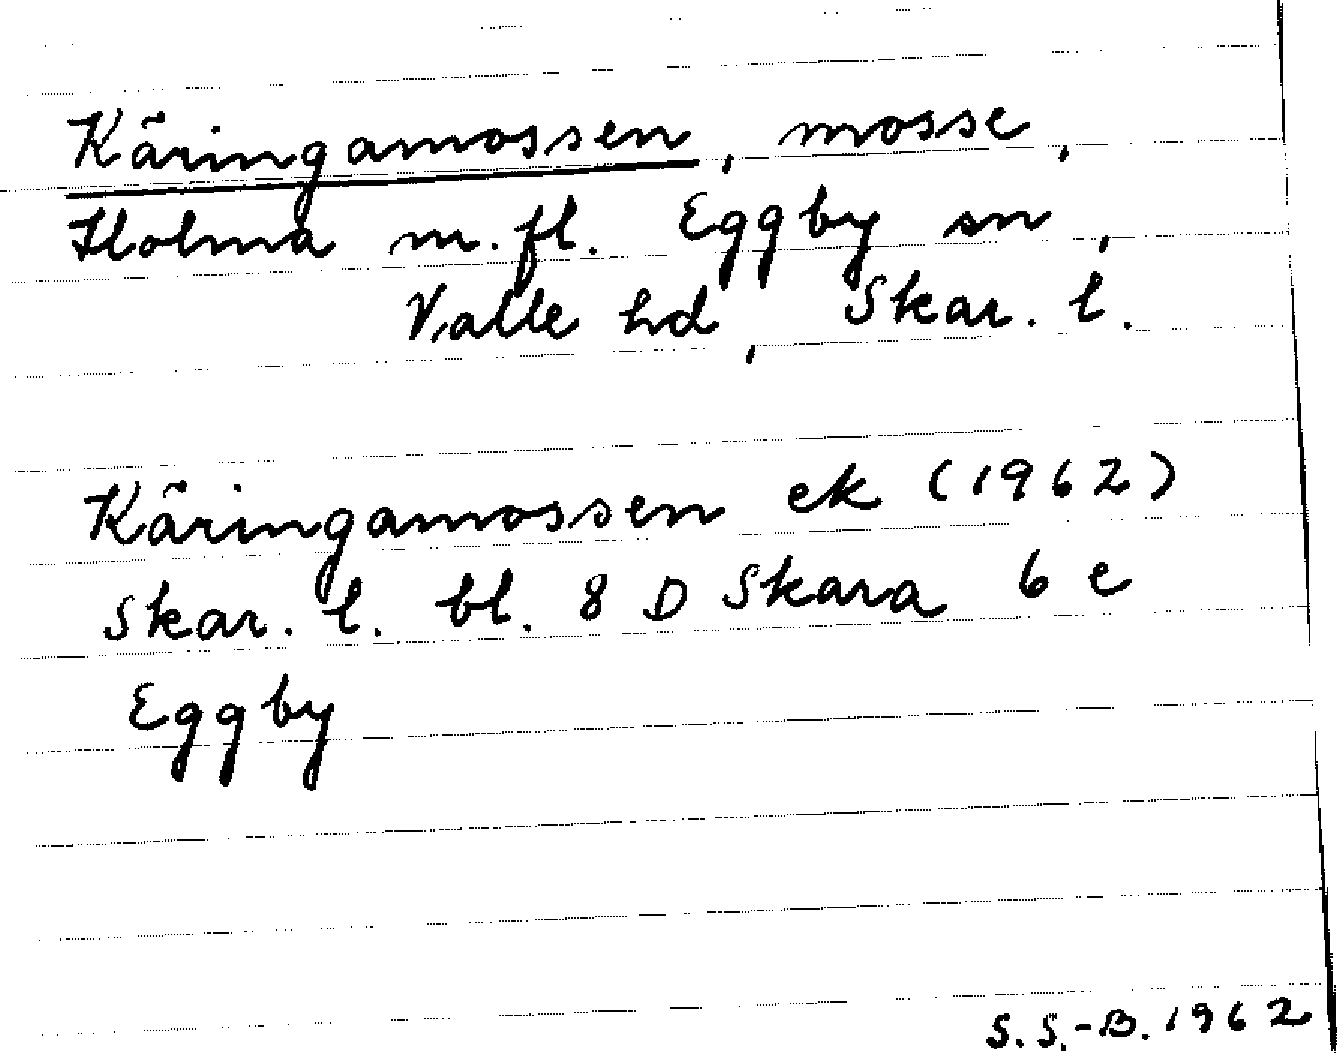 Käringamossen, mosse,
Holma m.fl. Eggby sn,
Valle hd, Skar. l.
Käringamossen ek (1962)
Skar. l. bl. 8 D Skara 6 e
Eggby
S.S.-B. 1962